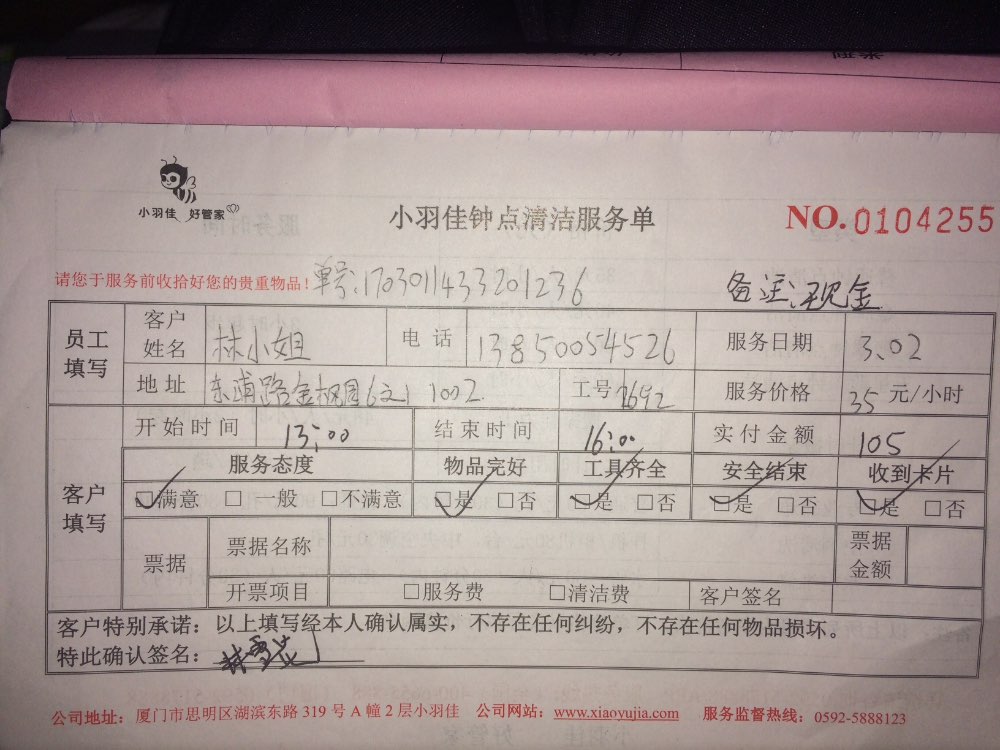 小羽佳 好管家
小羽佳钟点清洁服务单
NO.0104255
请您于服务前收拾好您的贵重物品！ 单号:170301143320 1236
备注:现金
员工填写 客户姓名 林小姐 电话 13850054526 服务日期 3.02
地址 东浦路金枫园 1002 工号 2692 服务价格 35 元/小时
客户填写 开始时间 13:00 结束时间 16:00 实付金额 105
服务态度 物品完好 工具齐全 安全结束 收到卡片
☑满意 □一般 □不满意 ☑是 □否 ☑是 □否 ☑是 □否 ☑是 □否
票据 票据名称 票据金额
开票项目 □服务费 □清洁费 客户签名
客户特别承诺：以上填写经本人确认属实，不存在任何纠纷，不存在任何物品损坏。
特此确认签名：林雪花
公司地址：厦门市思明区湖滨东路 319 号 A 幢 2 层小羽佳 公司网站：www.xiaoyujia.com 服务监督热线：0592-5888123